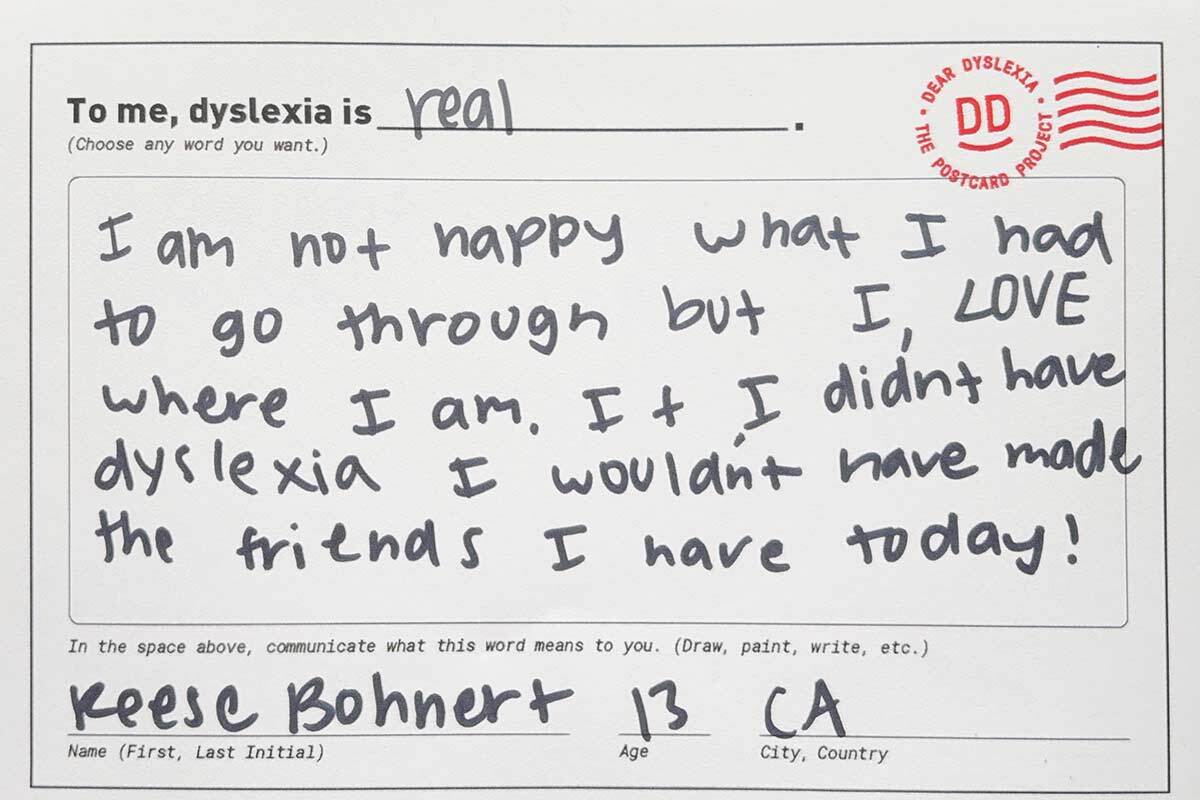 To me, dyslexia is real.
(Choose any word you want.)
DEAR DYSLEXIA • THE POSTCARD PROJECT •
DD
I am not happy what I had
to go through but I, LOVE
where I am. It, I didnt have
dyslexia I wouldn't have made
the friends I have today!
In the space above, communicate what this word means to you. (Draw, paint, write, etc.)
Reese Bohnert 13 CA
Name (First, Last Initial) Age City, Country